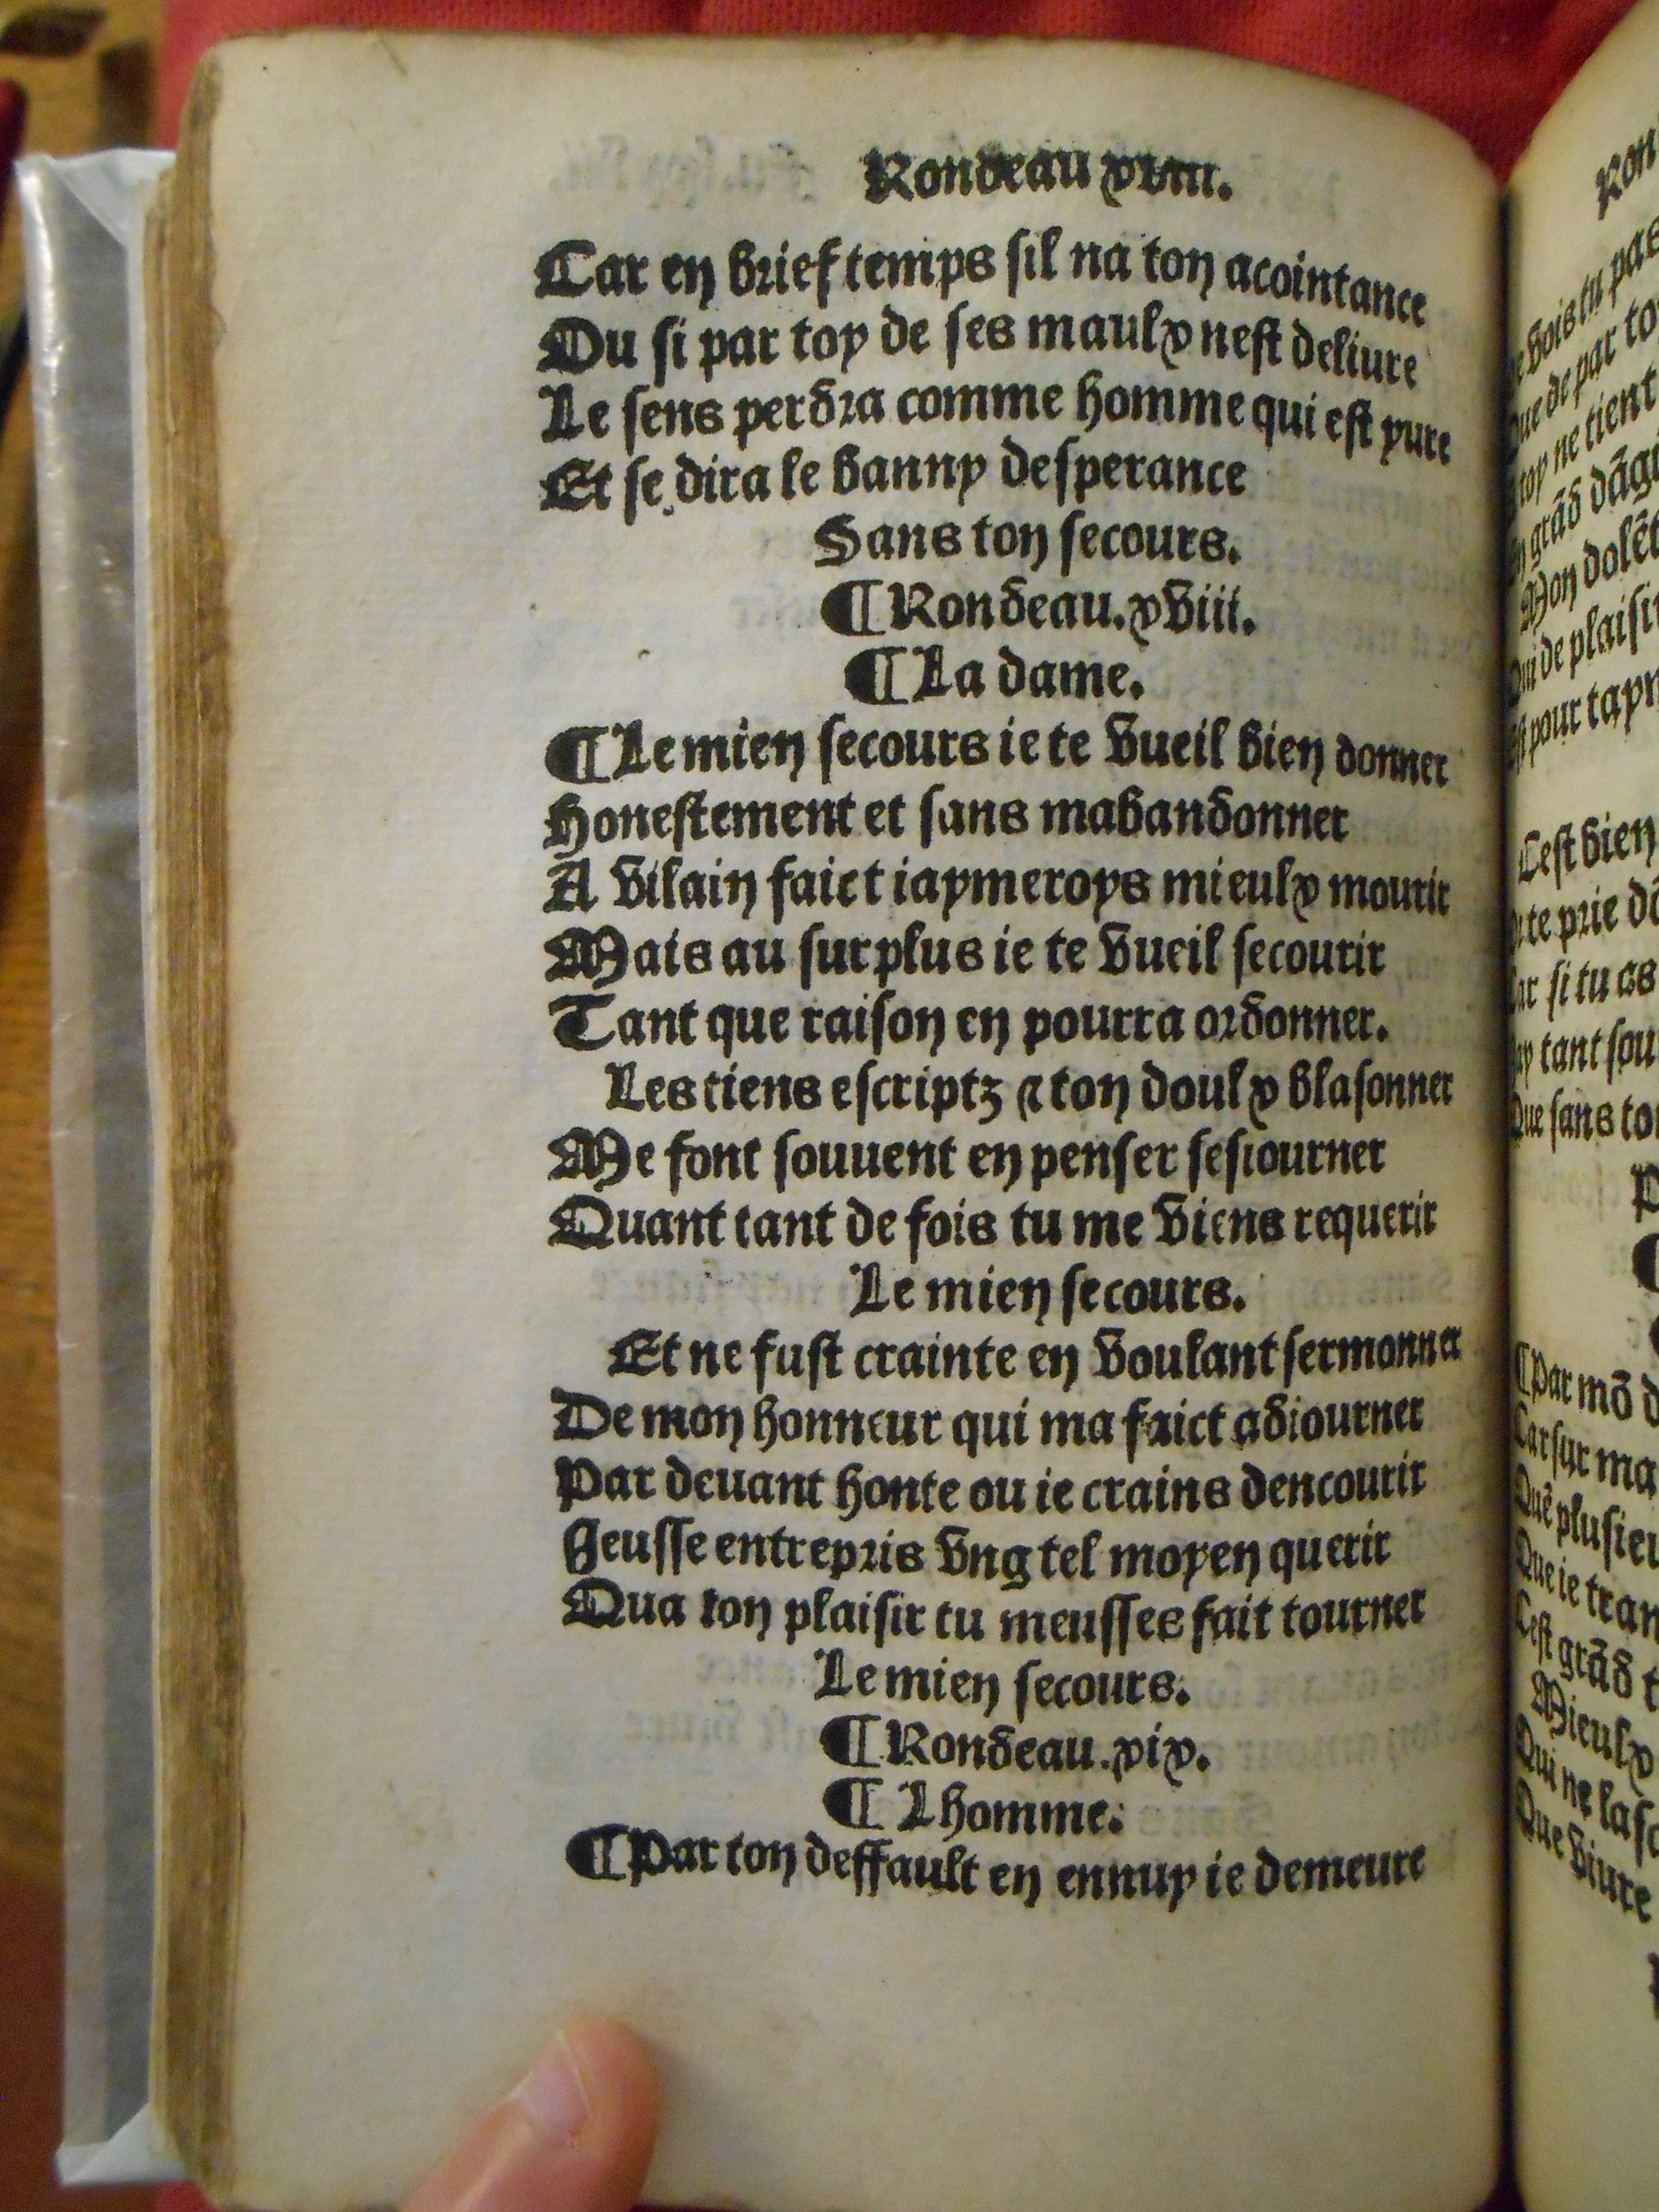 Rondeau xviii.
Car en brief temps sil na ton acointance
Ou si par toy de ses maulx nest deliure
Le sens perdra comme homme qui est yure
Et se dira le banny desperance
Sans ton secours.
¶ Rondeau. xviii.
¶ La dame.
¶ Le mien secours ie te vueil bien donner
Honestement et sans mabandonner
A vilain faict iaymeroys mieulx mourir
Mais au surplus ie te vueil secourir
Tant que raison en pourra ordonner.
Les tiens escriptz ⁊ ton doulx blasonner
Me font souuent en penser sesiourner
Quant tant de fois tu me viens requerir
Le mien secours.
Et ne fust crainte en voulant sermonner
De mon honneur qui ma faict adiourner
Par deuant honte ou ie crains dencourir
Jeusse entrepris vng tel moyen querir
Qua ton plaisir tu meusses fait tourner
Le mien secours.
¶ Rondeau. xix.
¶ Lhomme.
¶ Par ton deffault en ennuy ie demeure
Ron
vois tu pas
de par to
toy ne tient
grãd dãg
Mon dolẽt
de plaisi
pour tayn
Cest bien
te prie
si tu as
tant sou
Que sans to
¶ Par mõ d
Car sur ma
Que plusieu
Que ie tran
Cest grãd t
Mieulx
Qui ne lass
Que viure